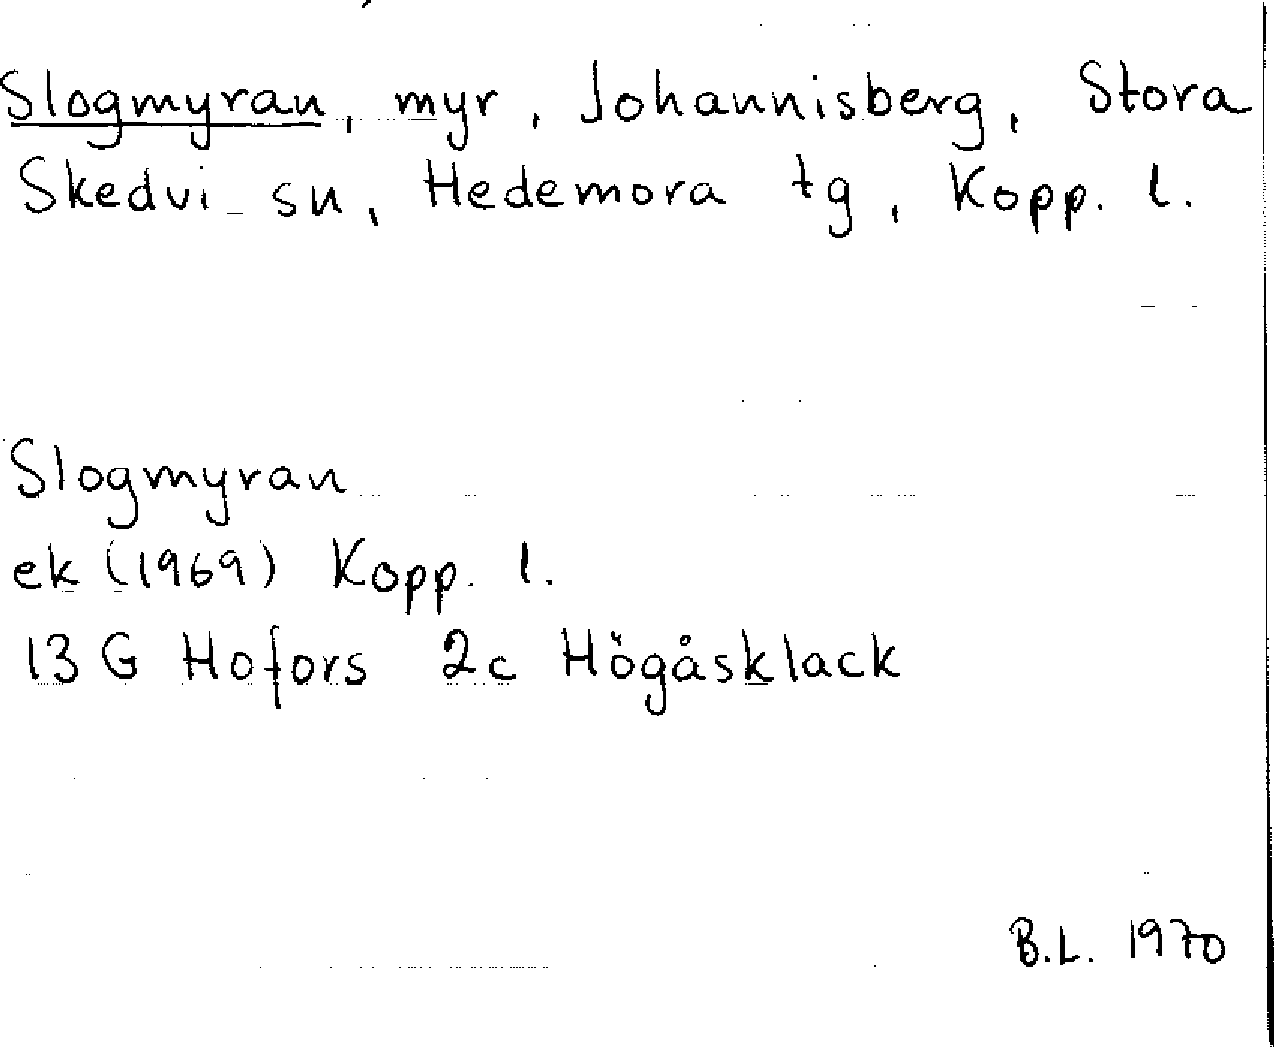 Slogmyran, myr, Johannisberg, Stora
Skedvi sn, Hedemora tg, Kopp. l.
Slogmyran
ek (1969) Kopp. l.
13 G Hofors 2c Högåsklack
B.L. 1970